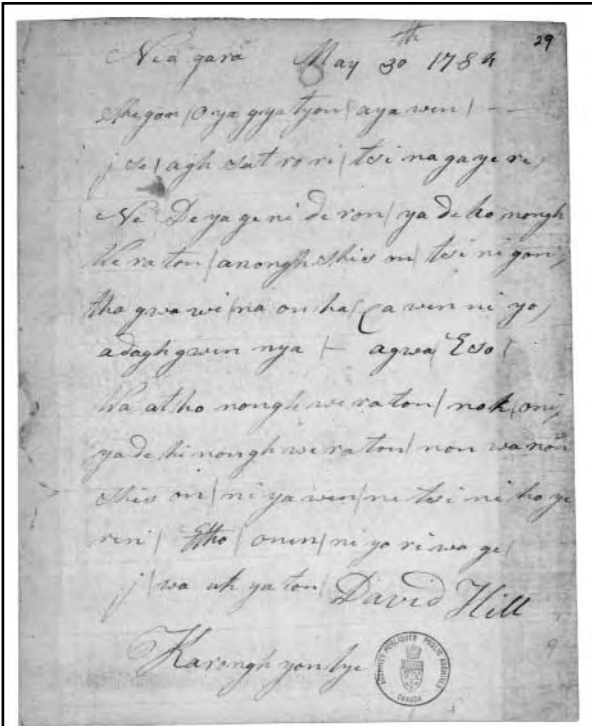 29
Niagara May 30th 1784
Shegon / O ya gyatyon / aya wen / —
j se / agh satrori / tsi nagayere /
Ne De ya ge ni de ron / ya de ho nongh
we ra ton / anongh shis on / tsi ni gon /
tha gwa wi / na on ha / Ca wen ni yo /
adagh gwen nya / — agwa / Eso /
wa at ho nongh we ra ton / nok / oni /
ya de hi nongh we ra ton / non wa ron
shis on / ni ya wen / ne tsi ni ho ye
ren / Etho / onen / ni yo ri wa ge /
j / wa uk ya ton / David Hill
Karongh yon tye
ARCHIVES PUBLIQUES PUBLIC ARCHIVES
CANADA